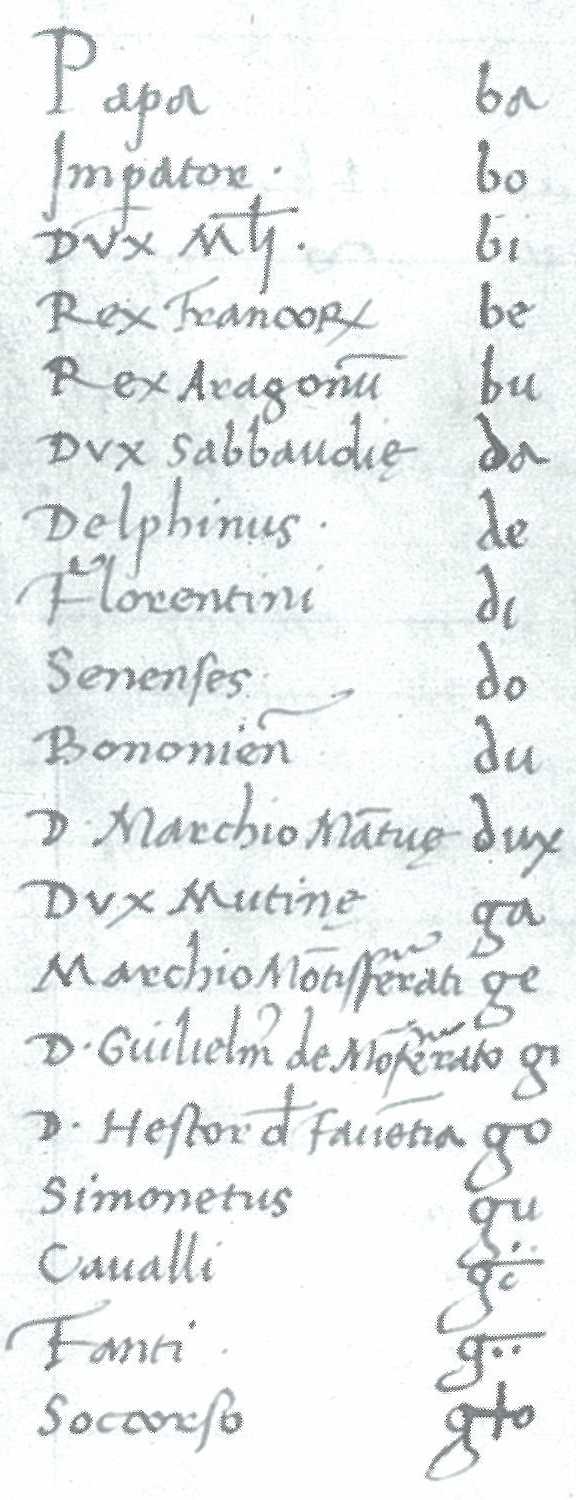 Papa ba
Impator. bo
Dux Mli. bi
Rex Francorꝝ be
Rex Aragonū bu
Dux Sabbaudię da
Delphinus. de
Florentini di
Senenses do
Bononień du
D. Marchio Mātuę dux
Dux Mutinę ga
Marchio Mōtisferrati ge
D. Guilielm de Moferrato gi
D. Hestor d Fauētia go
Simonetus gu
Caualli
Fanti
Soccorso gto